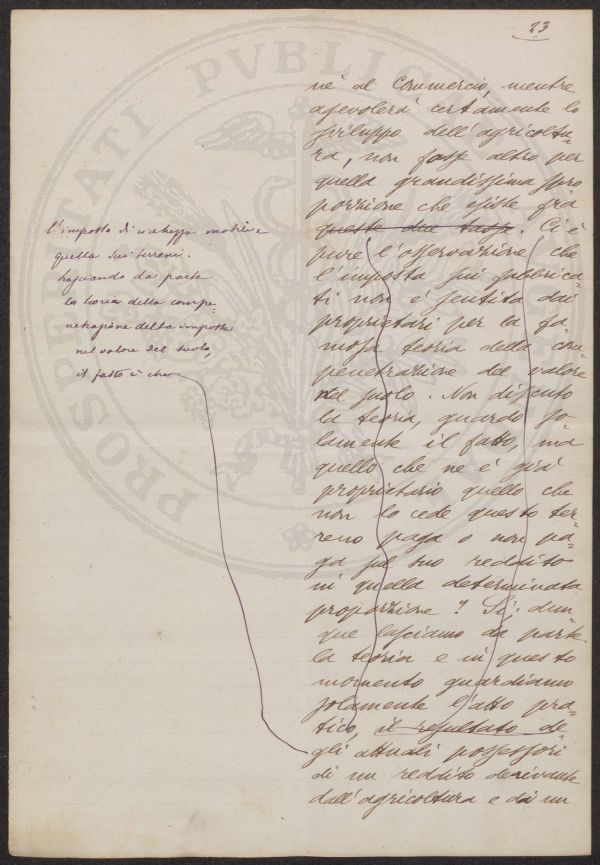 23
nè al Commercio, mentre
agevolerà certamente lo
sviluppo dell'agricoltu-
ra, non fosse altro per
quella grandissima spro
porzione che esiste fra
queste due tasse. Ci è
pure l'osservazione che
l'imposta sui fabbrica-
ti non è sentita dai
proprietari per la fa-
mosa teoria della com
penetrazione del valore
del suolo. Non discuto
la teoria, guardo so-
lamente il fatto, ma
quello che ne è già
proprietario quello che
non lo cede questo ter-
reno paga o non pa-
ga sul suo reddito
in quella determinata
proporzione? Sì: dun-
que lasciamo da parte
la teoria e in questo
momento guardiamo
solamente l'atto pra-
tico, il resultato de-
gli attuali possessori
di un reddito derivante
dall'agricoltura e da un
l'imposta di ricchezza mobile e
quella sui terreni.
Lasciando da parte
la teoria della compe-
netrazione della imposta
nel valore del suolo,
il fatto è che
PROSPERITATI PVBLICAE